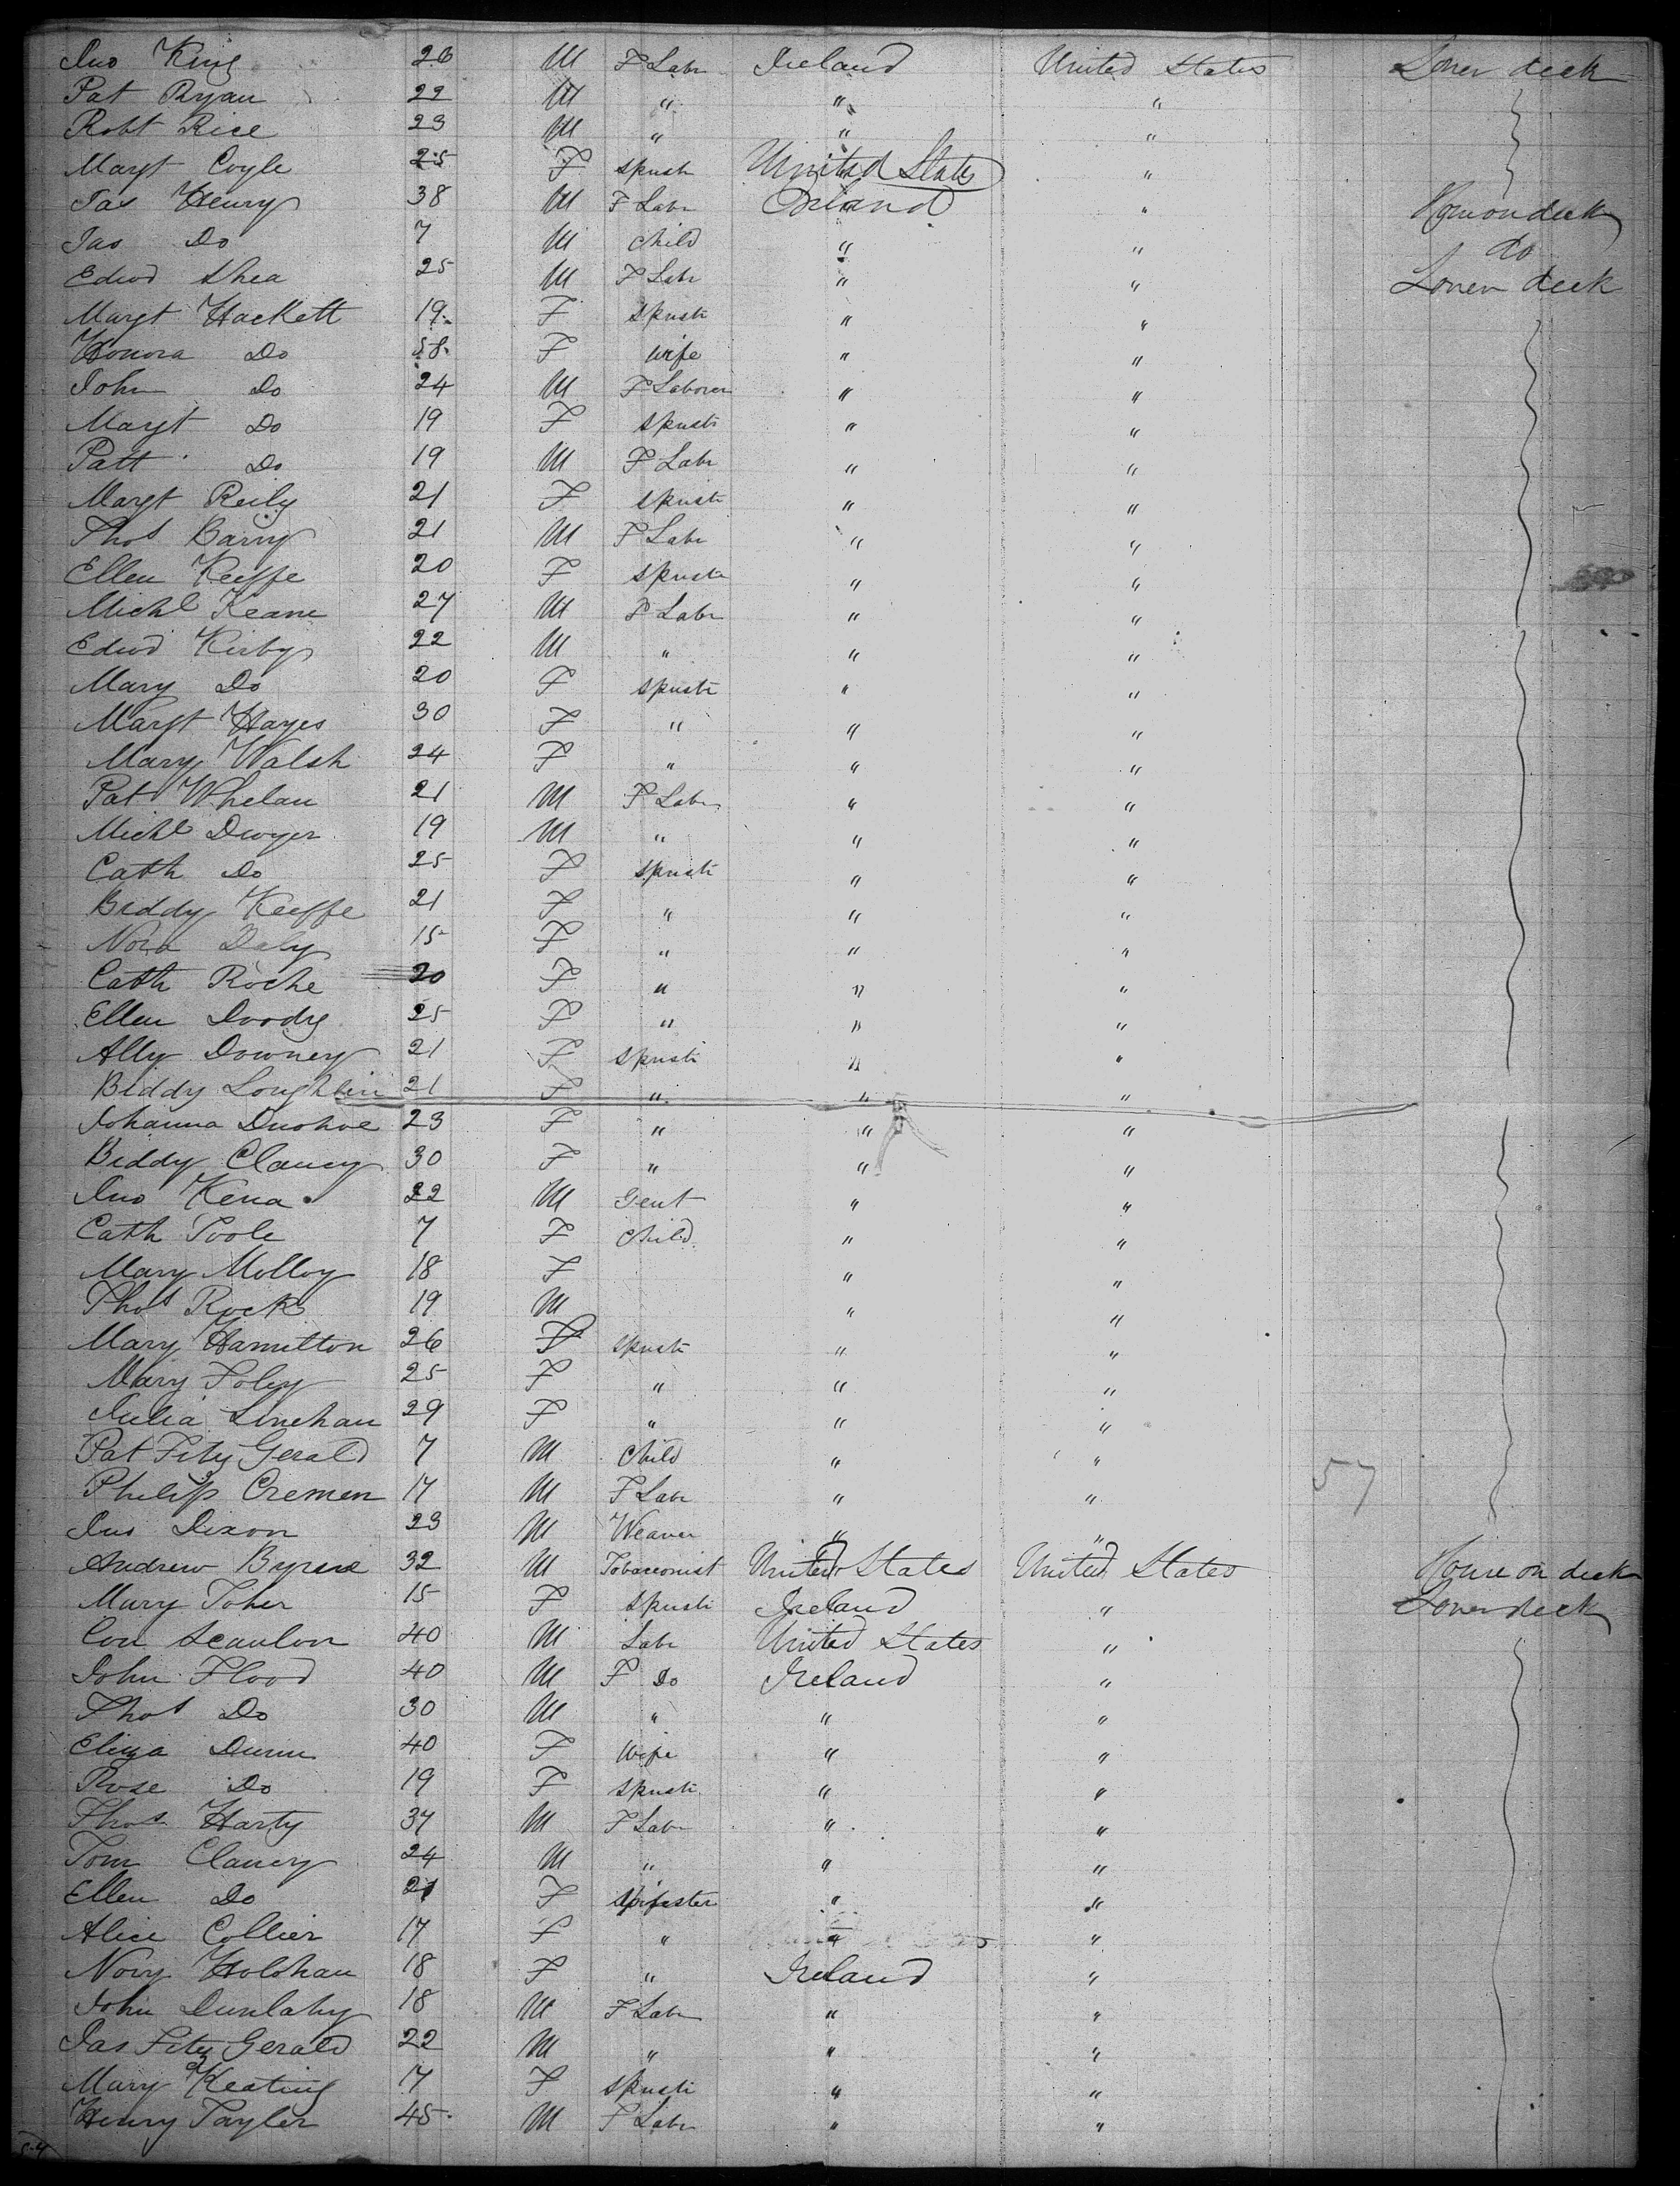 Jno King 26 M F Labr Ireland United States Lower deck
Pat Ryan 22 M " " "
Robt Rice 23 M " " "
Margt Coyle 25 F Spinstr United States "
Jas Henry 38 M F Labr Ireland " House on deck
Jas Do 7 M Child " " do
Edwd Shea 25 M F Labr " " Lower deck
Margt Hackett 19 F Spinstr " "
Honora Do 58 F wife " "
John Do 24 M F Laborer " "
Margt Do 19 F Spinstr " "
Patt Do 19 M F Labr " "
Margt Reily 21 F Spinstr " "
Thos Barry 21 M F Labr " "
Ellen Keeffe 20 F Spinstr " "
Michl Keane 27 M F Labr " "
Edwd Kirby 22 M " " "
Mary Do 20 F Spinstr " "
Margt Hayes 30 F " " "
Mary Walsh 24 F " " "
Pat Whelan 21 M F Labr " "
Michl Dwyer 19 M " " "
Cath Do 25 F Spinstr " "
Biddy Keeffe 21 F " " "
Nora Daly 15 F " " "
Cath Roche 20 F " " "
Ellen Doody 25 F " " "
Ally Downey 21 F Spinstr " "
Biddy Loughlin 21 F " " "
Johanna Duohoe 23 F " " "
Biddy Clancy 30 F " " "
Jno Kena 22 M Gent " "
Cath Toole 7 F Child " "
Mary Molloy 18 F " "
Thos Rock 19 M " "
Mary Hamilton 26 F Spinstr " "
Mary Foley 25 F " " "
Julia Linehan 29 F " " "
Pat Fitz Gerald 7 M Child " "
Philip Cremen 17 M F Labr " " 57
Jno Dixon 23 M Weaver " "
Andrew Byrne 32 M Tobacconist United States United States House on deck
Mary Toher 15 F Spinstr Ireland " Lower deck
Con Scanlon 40 M Labr United States "
John Flood 40 M F Do Ireland "
Thos Do 30 M " " "
Eliza Dunn 40 F Wife " "
Rose Do 19 F Spinstr " "
Thos Harty 37 M F Labr " "
Tom Clancy 24 M " " "
Ellen Do 21 F Spinster " "
Alice Collier 17 F " " "
Nory Holohan 18 F " Ireland "
John Dunlahy 18 M F Labr " "
Jas Fitz Gerald 22 M " " "
Mary Keating 17 F Spinstr " "
Henry Tayler 45 M F Labr " "